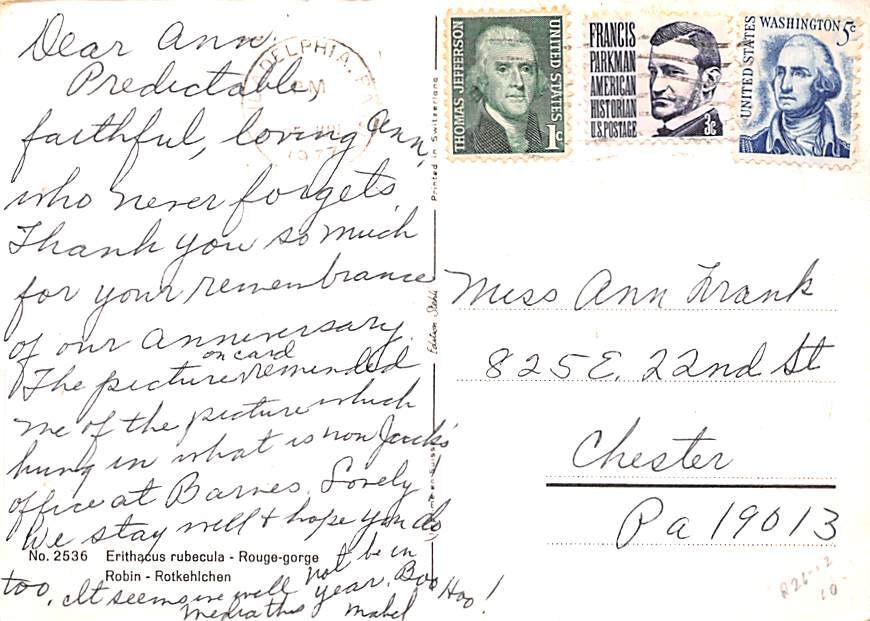 Dear Ann:
Predictable,
faithful, loving Ann,
who never forgets.
Thank you so much
for your remembrance
of our anniversary.
The picture on card reminded
me of the picture which
hung in what is now Jack's
office at Barnes. Lovely
We stay well & hope you do
too. It seems we will not be in
Media this year. Boo Hoo!
Mabel
No. 2536 Erithacus rubecula - Rouge-gorge
Robin - Rotkehlchen
Printed in Switzerland
THOMAS JEFFERSON
UNITED STATES
1c
FRANCIS
PARKMAN
AMERICAN
HISTORIAN
U.S. POSTAGE
3c
UNITED STATES
WASHINGTON 5c
PM
1977
Miss Ann Frank
825 E. 22nd St
Chester
Pa 19013
10